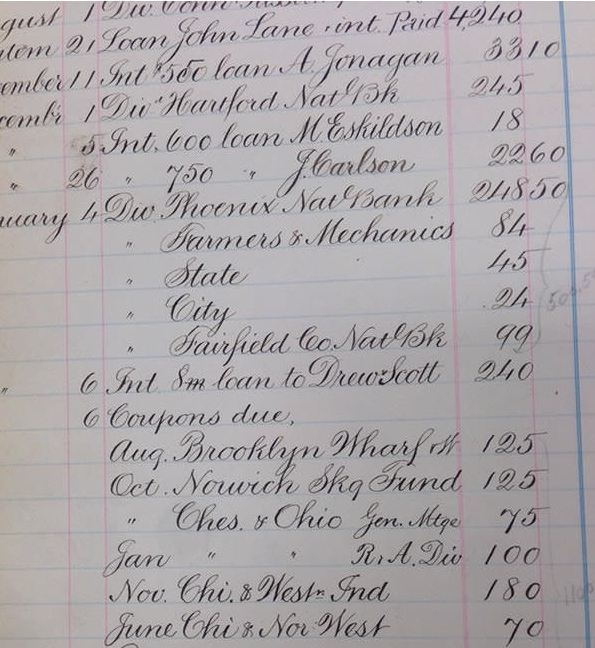 gust 1 Div. Conn
tem 21 Loan John Lane + int. Paid 4,240
ember 11 Int $550 loan A. Jonagan 33 10
cembr 1 Div. Hartford Natl Bk 245
" 5 Int. 600 loan M Eskildson 18
" 26 " 750 " J. Carlson 22 60
nuary 4 Div. Phoenix Natl Bank 248 50
" Farmers & Mechanics 84
" State 45
" City 24
" Fairfield Co. Natl Bk 99
" 6 Int 8m loan to Drew & Scott 240
6 Coupons due,
Aug. Brooklyn Wharf 125
Oct. Norwich Skg Fund 125
" Ches. & Ohio Gen. Mtge 75
Jan " " R. & A. Div 100
Nov. Chi. & Westn Ind 180
June Chi & Nor West 70